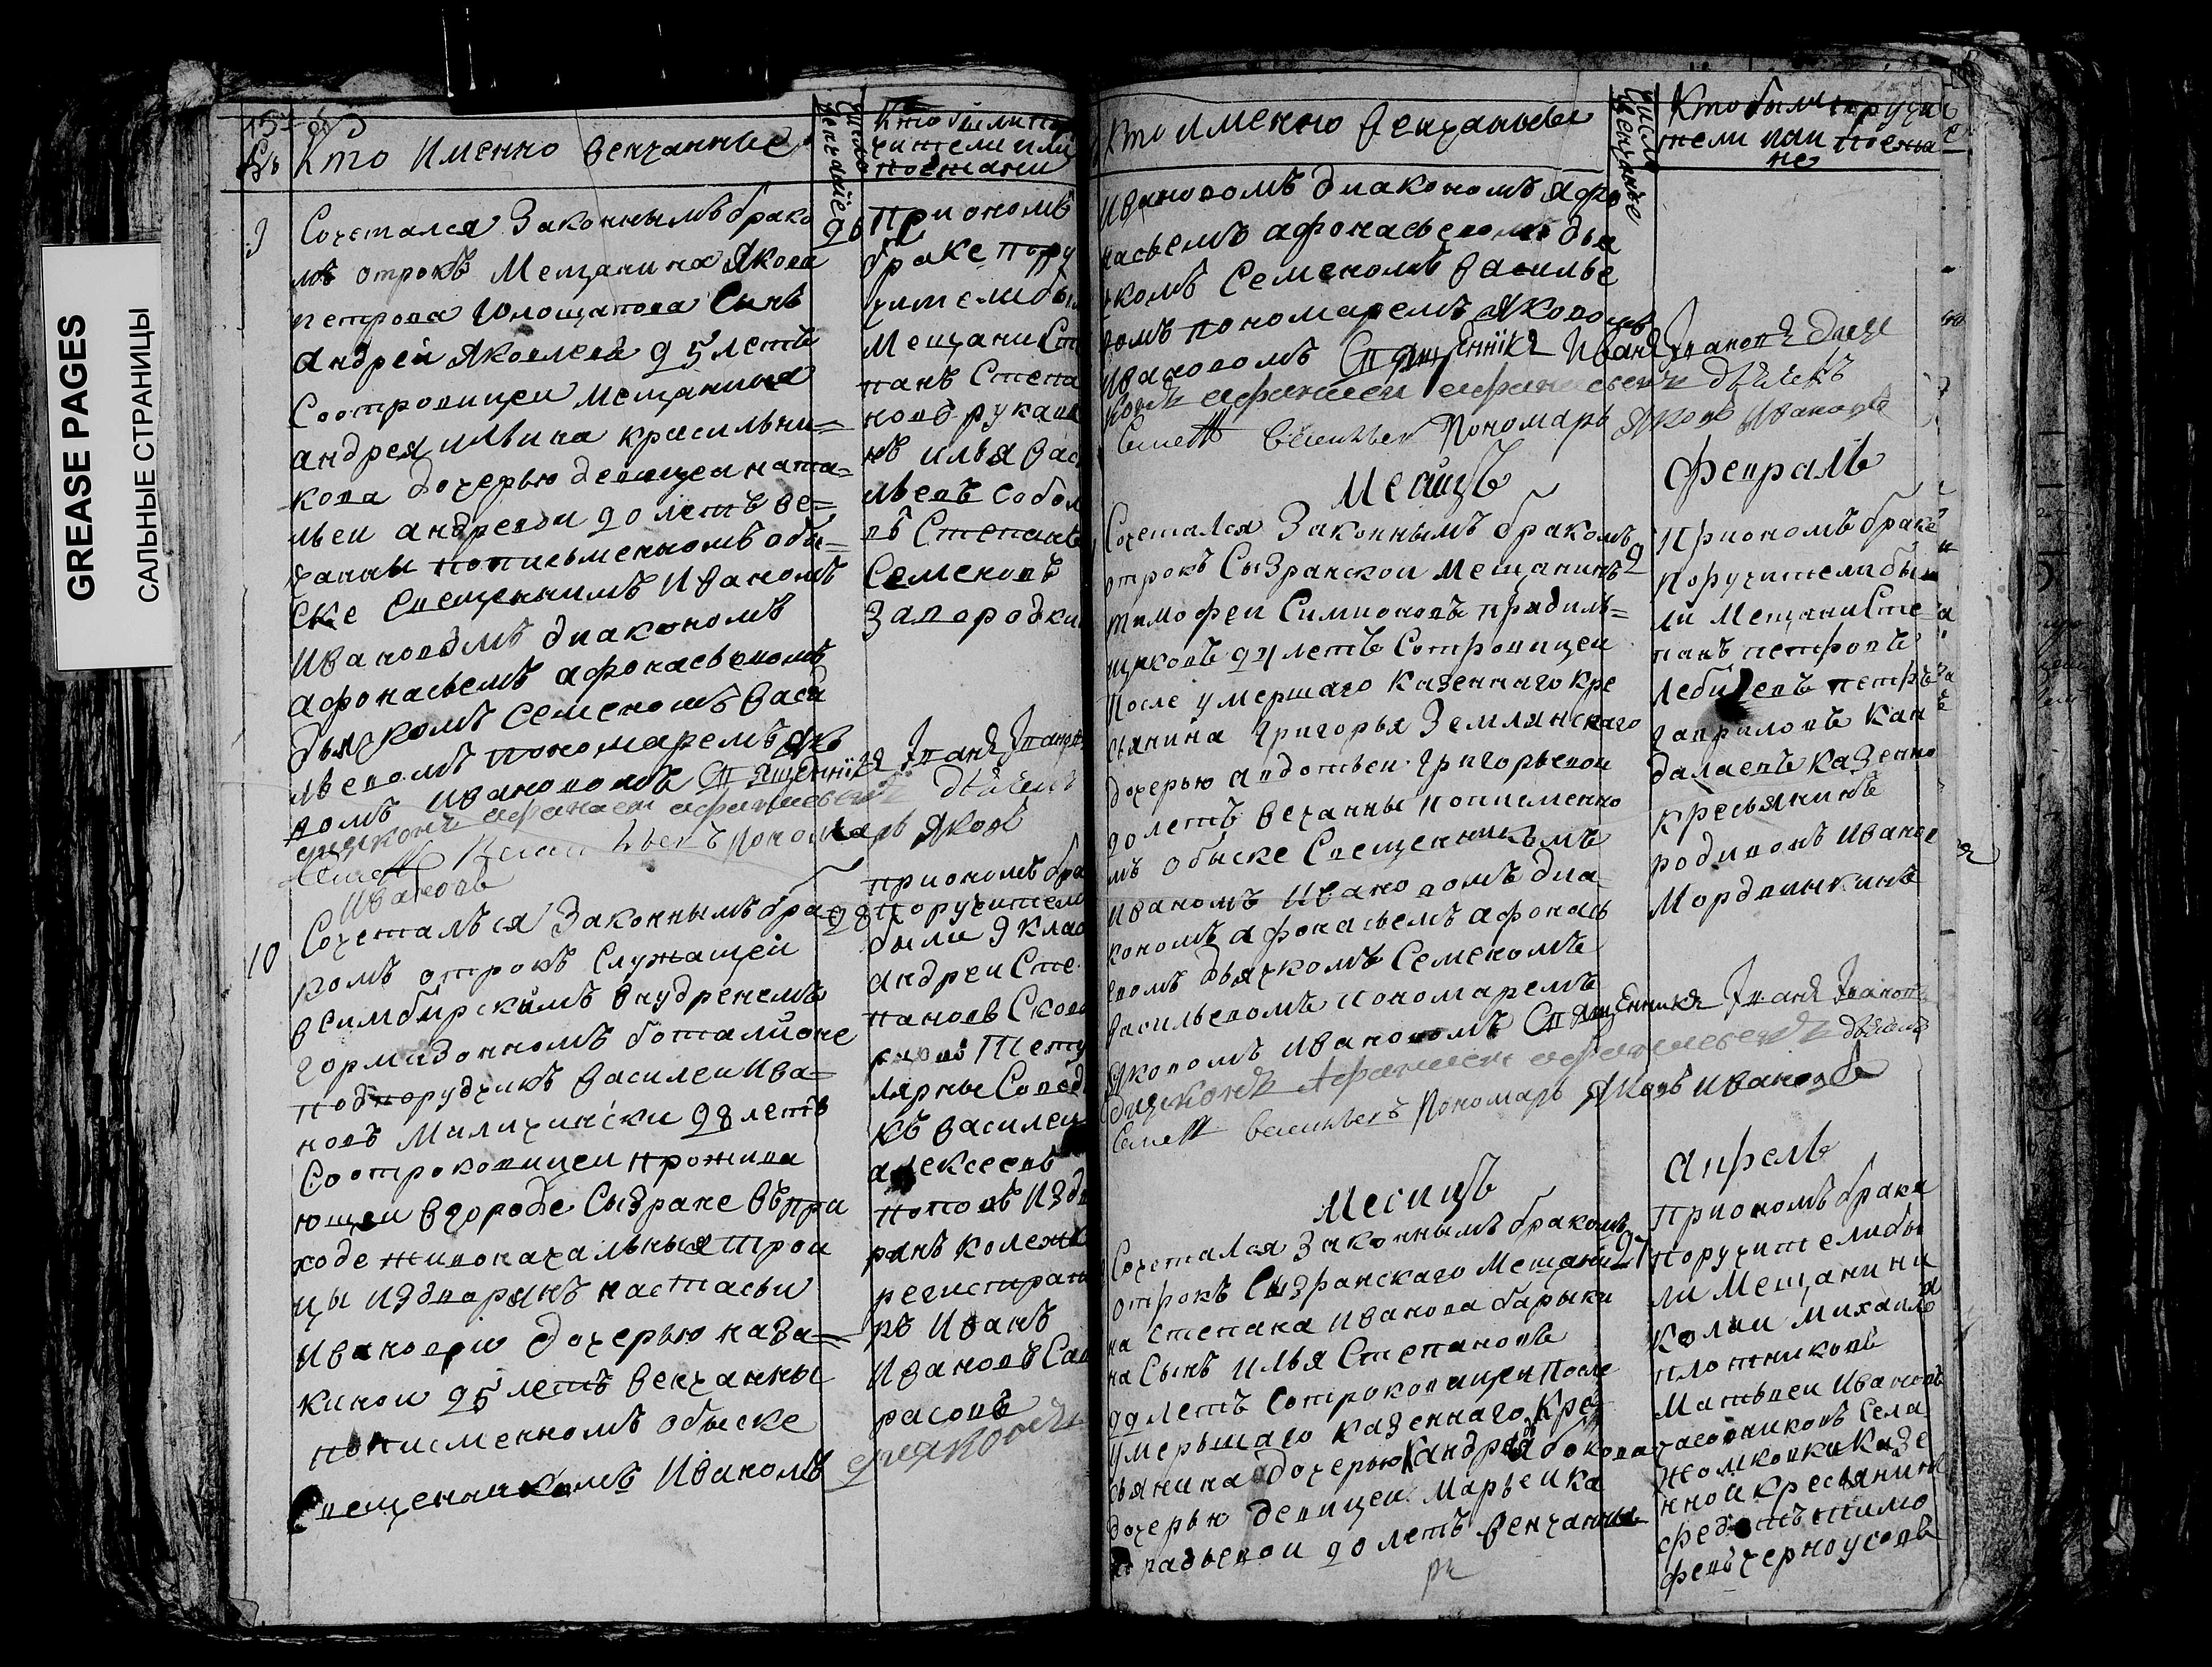 GREASE PAGES
САЛЬНЫЕ СТРАНИЦЫ
Кто Именно венчанные
Число
венчание
Кто были по
ручители или
поезжани
9
Сочетался Законнымъ брако
мъ отрокъ Мещанина Якова
петрова Сынъ
андрей Яковлевъ 25 летъ
Соотроковицеи мещанина
андрея ильина красильни=
кова дочерью девицеи ната=
льеи андревои 20 летъ ве=
нчанны пописьменномъ обы=
ске Свещенникмъ Иваномъ
Ивановомъ диакономъ
афонасьемъ афонасьевомъ
дьячкомъ семеномъ васи
льевомъ пономаремъ Яко
вомъ ивановомъ Священникъ Иванъ Ивановъ
диаконъ афанасеи афанасьевъ дьячекъ
Семенъ Васильевъ пономарь Яковъ
Ивановъ
26
При ономъ
браке пору
чители бы
Мещани Сте
панъ Степа
новъ рукав
нъ илья вас
льевъ собол
въ Степанъ
Семеновъ
Заgородки
10
Сочеталъся Законнымъ бра
комъ отрокъ Служащей
всимбирскомъ внудренемъ
гормизонномъ боталионе
подпорудчикъ василеи Ива=
новъ Миличински 28 летъ
Соотроковицеи прожива
ющеи вгороде Сызране въпри
ходе живоначальныя трои
цы издворянъ настасьи
Ивановою дочерью каза=
кинои 25 летъ венчанны
пописменномъ обыске
Свещенникомъ Иваномъ
28
приономъ бра
поручители
были 9 клас
андреи Сте
пановъ Сково
Титу
лярные Совед
къ василеи
алексеевъ
поповъ Изdво
рянъ колежс
регистрато
ръ Иванъ
Ивановъ Сап
расовъ
диаконъ
Кто именно венчаныи
число
венчание
Кто были поручи
тели или поезжа
не
Ивановомъ диакономъ Афо
насьемъ афонасьевомъ дья
чкомъ Семеномъ василье
вомъ пономаремъ Яковомъ
ивановомъ Священникъ Иванъ Ивановъ диа
конъ афанасеи афанасьевъ дьячекъ
Семенъ васильевъ Пономарь Яковъ Ивановъ
Месяцъ
февраль
Сочетался Законнымъ бракомъ
отрокъ Сызранскои мещанинъ
тимофеи Симионовъ прядиль=
щиковъ 24 летъ Сотровицеи
После умершаго казеннаго кре
сьянина Григорья Землянскаго
дочерью авдотьеи Григорьевои
20 летъ венчанны пописменно
мъ обыске Свещенникомъ
Иваномъ Ивановомъ диа
кономъ афонасьемъ афонась
евомъ дьячкомъ Семеномъ
васильевомъ пономаремъ
Яковомъ ивановомъ Священникъ Иванъ Ивановъ
диаконъ Афанасеи афанасьевъ дьячекъ
Семенъ васильевъ Пономарь Яковъ Ивановъ
2
Приономъ браке
поручители бы
ли Мещани Сте
панъ петровъ
Лебедевъ петръ
гавриловъ Кан
далаевъ казенно
кресьянинъ
родивонъ Ивано
Мордвинкинъ
Месицъ
апрель
Сочетался Законнымъ бракомъ
отрокъ Сызранскаго Мещани
на Степана Иванова барыки
на Сынъ Илья Степановъ
22 летъ Сотроковицеи После
умершаго казеннаго кре
сьянина дочерью андрея бокова
дочерью девицеи Марьеи ка
ндратьевои 20 летъ венчанны
27
Приономъ браке
поручители бы
ли Мещани ни
колаи михаило
плотниковъ
Матвеи Ивановъ
часовниковъ Села
жомковки казе
ннои кресьянинъ
федотъ тимо
феивъ черноусовъ